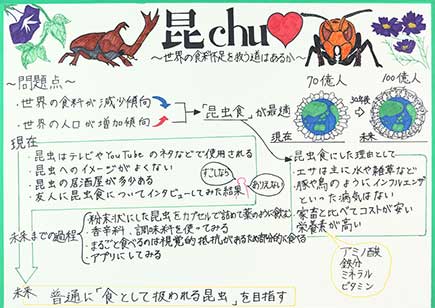 昆chu
~世界の食料不足を救う道はあるか~
~問題点~
・世界の食料が減少傾向
・世界の人口が増加傾向
「昆虫食」が最適
70億人
100億人
30年後
現在
未来
現在
・昆虫はテレビやYouTubeのネタなどで使用される
・昆虫へのイメージがよくない
・昆虫の居酒屋が多少ある
・友人に昆虫食についてインタビューしてみた結果
すこしなら
ありえない
昆虫食にした理由として
・エサは主に水や雑草など
・豚や鳥のようにインフルエンザ
といった病気はない
・家畜と比べてコストが安い
・栄養素が高い
アミノ酸
鉄分
ミネラル
ビタミン
未来までの過程
・粉末状にした昆虫をカプセルで詰めて薬のように飲む
・香辛料、調味料を使ってみる
・まるごと食べるのは視覚的抵抗があるため部分的に食べる
・アプリにしてみる
未来
普通に「食として扱われる昆虫」を目指す